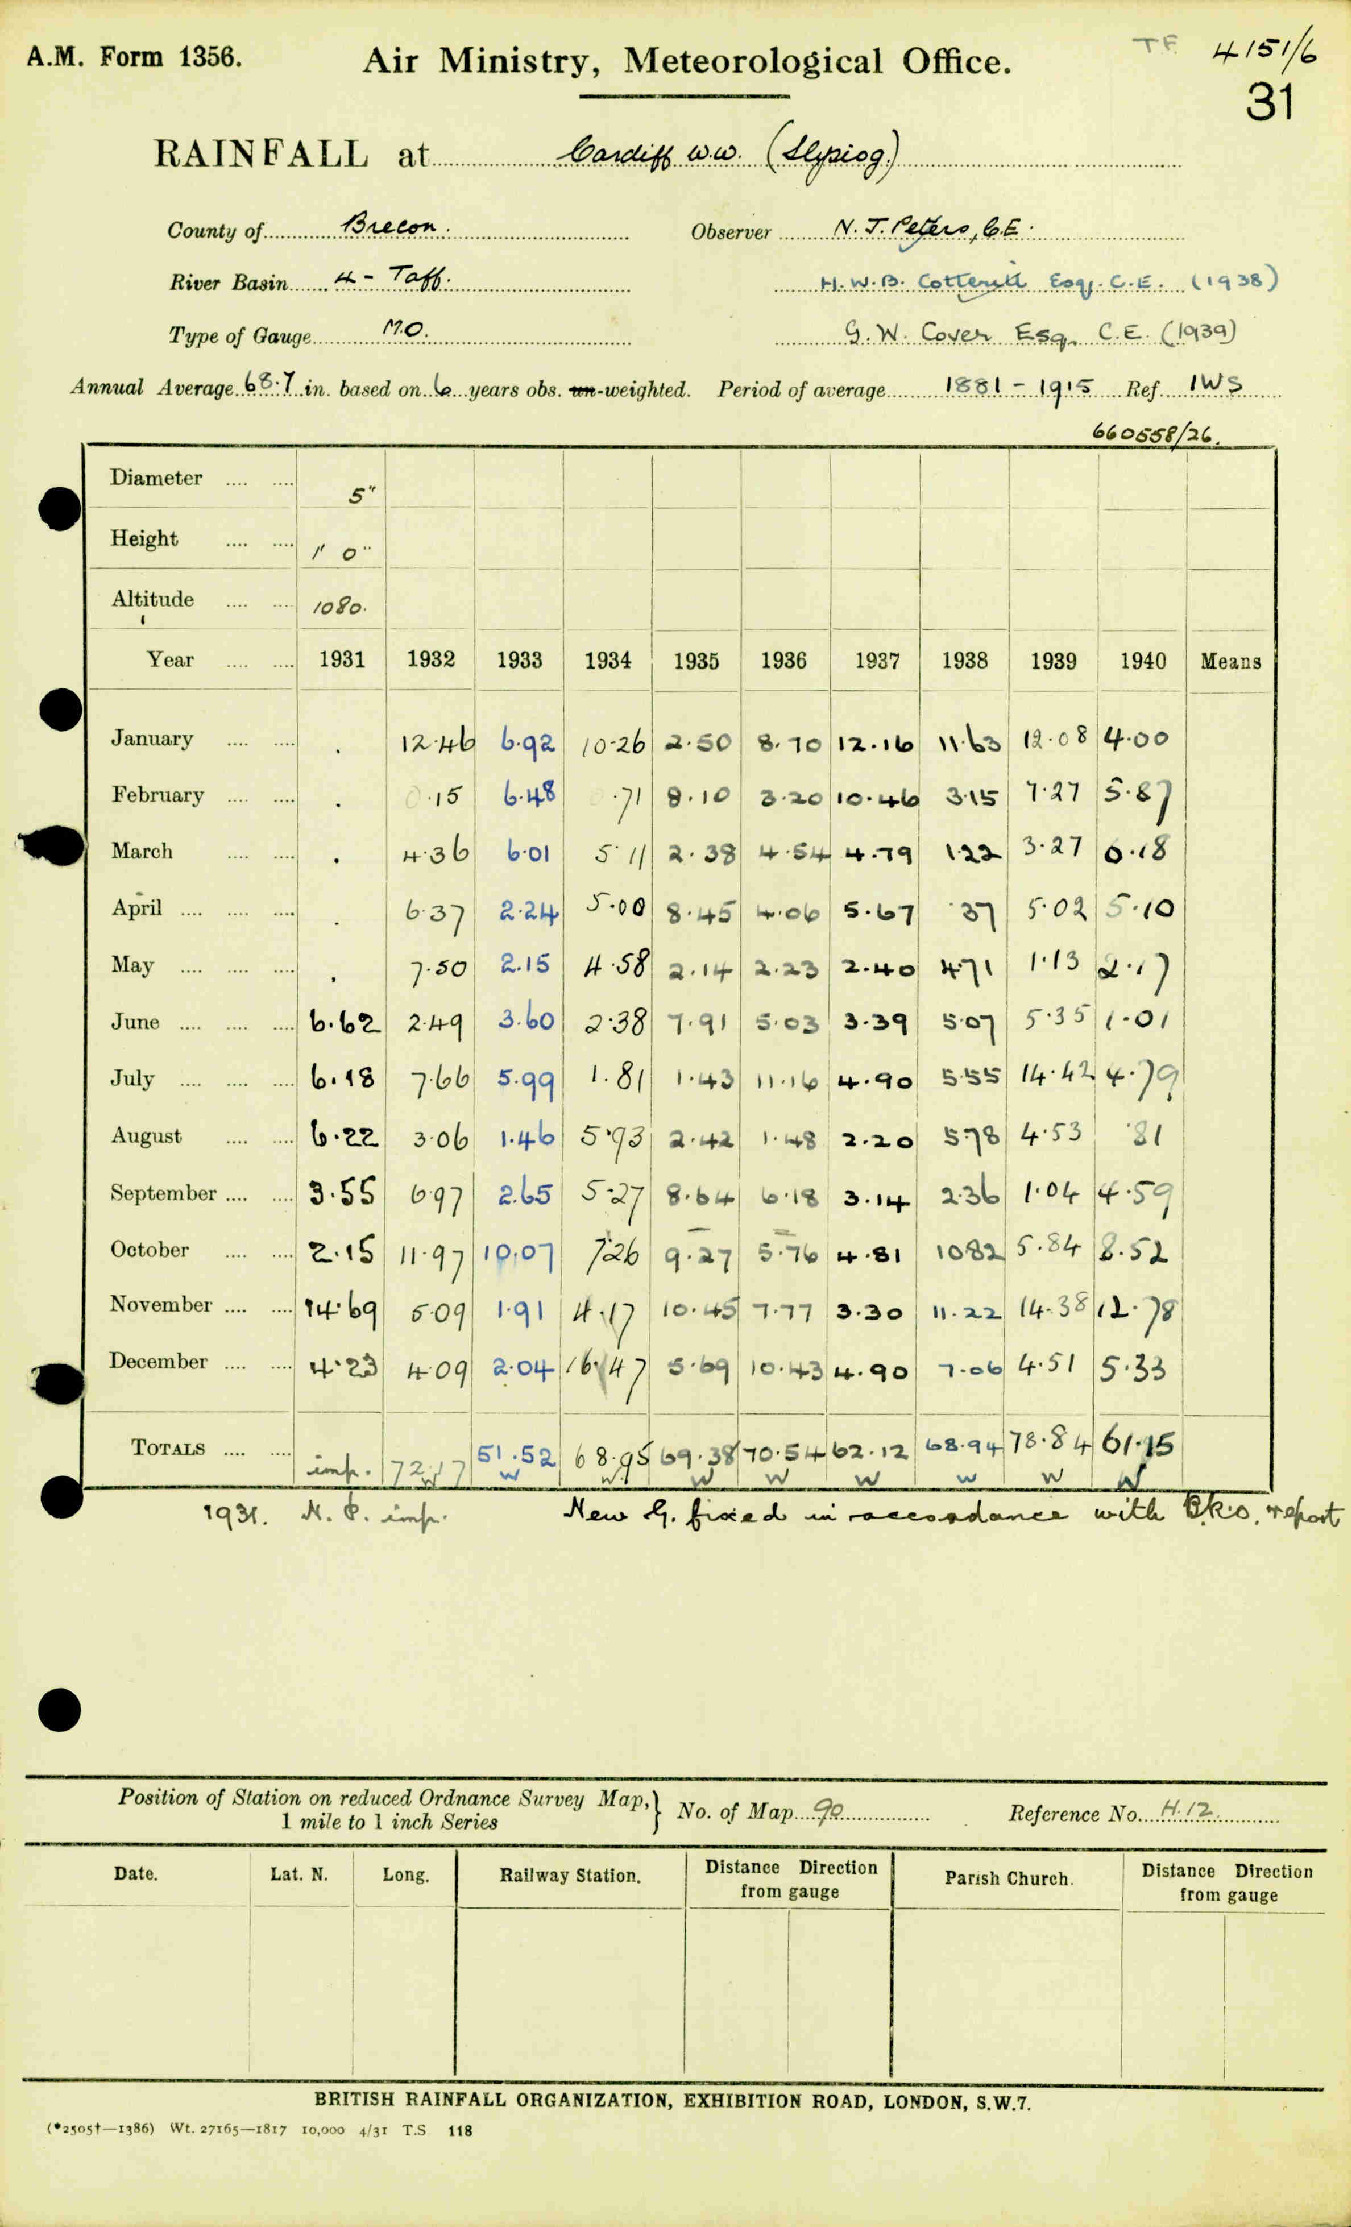 TF 4151/6
A.M. Form 1356. Air Ministry, Meteorological Office.
31
RAINFALL at Cardiff W.W. (Slypiog.)
County of Brecon. Observer N. J. Peters, C.E.
River Basin 4 - Taff. H.W.B. Cotterill Esq. C.E. (1938)
Type of Gauge M.O. G. W. Cover Esq. C.E. (1939)
Annual Average 68.7 in. based on 6 years obs. un-weighted. Period of average 1881 - 1915 Ref. IWS
660558/26.
Diameter .... .... 5"
Height .... .... 1' 0"
Altitude .... .... 1080.
Year .... .... 1931 1932 1933 1934 1935 1936 1937 1938 1939 1940 Means
January .... .... . 12.46 6.92 10.26 2.50 8.70 12.16 11.63 12.08 4.00
February .... .... . 0.15 6.48 .71 8.10 3.20 10.46 3.15 7.27 5.87
March .... .... . 4.36 6.01 5.11 2.38 4.54 4.79 1.22 3.27 6.18
April .... .... .... . 6.37 2.24 5.00 8.45 4.06 5.67 .37 5.02 5.10
May .... .... .... . 7.50 2.15 4.58 2.14 2.23 2.40 4.71 1.13 2.17
June .... .... .... 6.62 2.49 3.60 2.38 7.91 5.03 3.39 5.07 5.35 1.01
July .... .... .... 6.18 7.66 5.99 1.81 1.43 11.16 4.90 5.55 14.42 4.79
August .... .... 6.22 3.06 1.46 5.93 2.42 1.48 2.20 5.78 4.53 .81
September .... .... 3.55 6.97 2.65 5.27 8.64 6.18 3.14 2.36 1.04 4.59
October .... .... 2.15 11.97 10.07 7.26 9.27 5.76 4.81 10.82 5.84 8.52
November .... .... 14.69 5.09 1.91 4.17 10.45 7.77 3.30 11.22 14.38 12.78
December .... .... 4.23 4.09 2.04 16.47 5.69 10.43 4.90 7.06 4.51 5.33
TOTALS .... .... imp. 72.17 51.52 68.95 69.38 70.54 62.12 68.94 78.84 61.15
W W W W W W W W W
1931. N. P. imp. New G. fixed in accordance with B.R.O. report
Position of Station on reduced Ordnance Survey Map,} No. of Map 90 Reference No. H.12.
1 mile to 1 inch Series
Date. Lat. N. Long. Railway Station. Distance Direction Parish Church. Distance Direction
from gauge from gauge
BRITISH RAINFALL ORGANIZATION, EXHIBITION ROAD, LONDON, S.W.7.
(*2505†—1386) Wt. 27165—1817 10,000 4/31 T.S 118